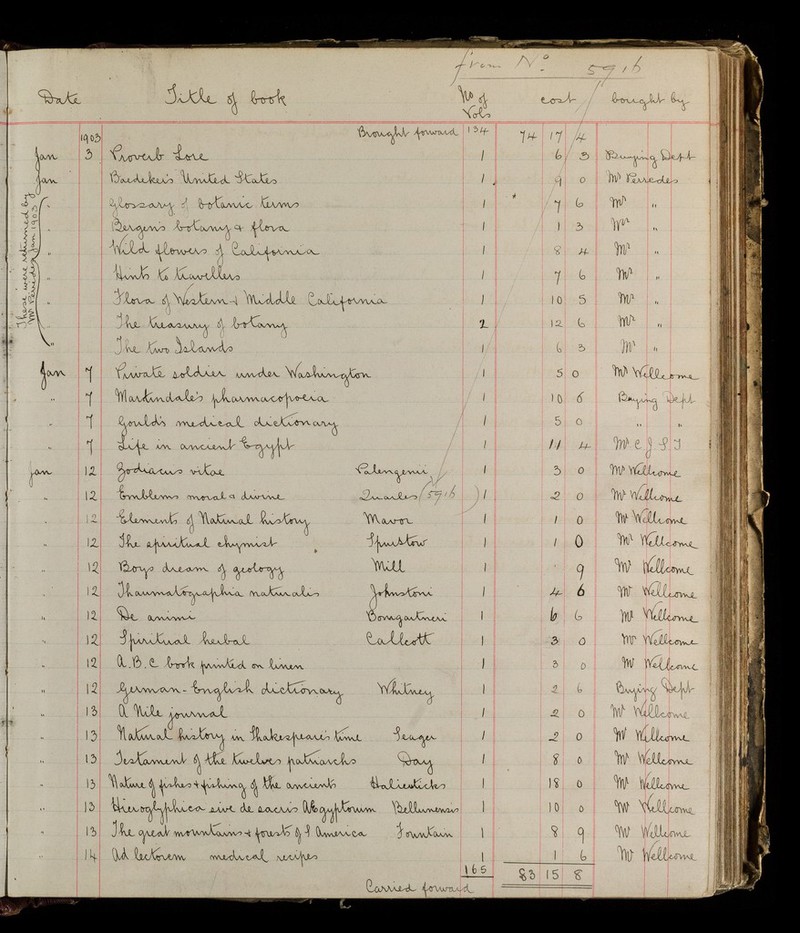 from No 5916
Date Title of book No of Vols cost bought by
1903 Brought forward 134 74 17 4
Jan 3 Proverb Lore 1 6 3 Buying Dept
Jan Baedeker's United States 1 9 0 Mr Perredes
These were returned by Mr Perredes Jan 1903
" Glossary of botanic terms 1 7 6 Mr "
" Bergen's botany & flora 1 1 3 Mr "
" Wild flowers of California 1 8 4 Mr "
" Hints to travellers 1 7 6 Mr "
" Flora of Western & Middle California 1 10 5 Mr "
" The treasury of botany 2 12 6 Mr "
" The two Islands 1 6 3 Mr "
Jan 7 Private soldier under Washington 1 5 0 Mr Wellcome
" 7 Martindale's pharmacopoeia 1 10 6 Buying Dept
" 7 Gould's medical dictionary 1 5 0 " "
" 7 Life in ancient Egypt 1 11 4 Mr C J S T
Jan 12 Zodiacus vitae Palengenii 1 3 0 Mr Wellcome
" 12 Emblems moral & divine Quarles (5916) 1 2 0 Mr Wellcome
" 12 Elements of Natural history Mavor 1 1 0 Mr Wellcome
" 12 The spiritual chymist Spurstow 1 1 0 Mr Wellcome
" 12 Boys dream of geology Mill 1 9 Mr Wellcome
" 12 Thaumatographia naturalis Johnstoni 1 4 6 Mr Wellcome
" 12 De animi Bomgartneri 1 6 6 Mr Wellcome
" 12 Spiritual herbal Callcott 1 3 0 Mr Wellcome
" 12 A.B.C. book printed on linen 1 3 0 Mr Wellcome
" 12 German-English dictionary Whitney 1 2 6 Buying Dept
" 13 A Nile journal 1 2 0 Mr Wellcome
" 13 Natural history in Shakespeare's time Seager 1 2 0 Mr Wellcome
" 13 Testament of the twelves patriarchs Day 1 8 0 Mr Wellcome
" 13 Nature of fishes & fishing of the ancients Halieuticks 1 18 0 Mr Wellcome
" 13 Hieroglyphica sive de sacris Aegyptorum Bellunensis 1 10 0 Mr Wellcome
" 13 The great mountains & forests of S America Fountain 1 8 9 Mr Wellcome
" 14 Ad lectorem medical recipes 1 1 6 Mr Wellcome
Carried forward 165 83 15 8